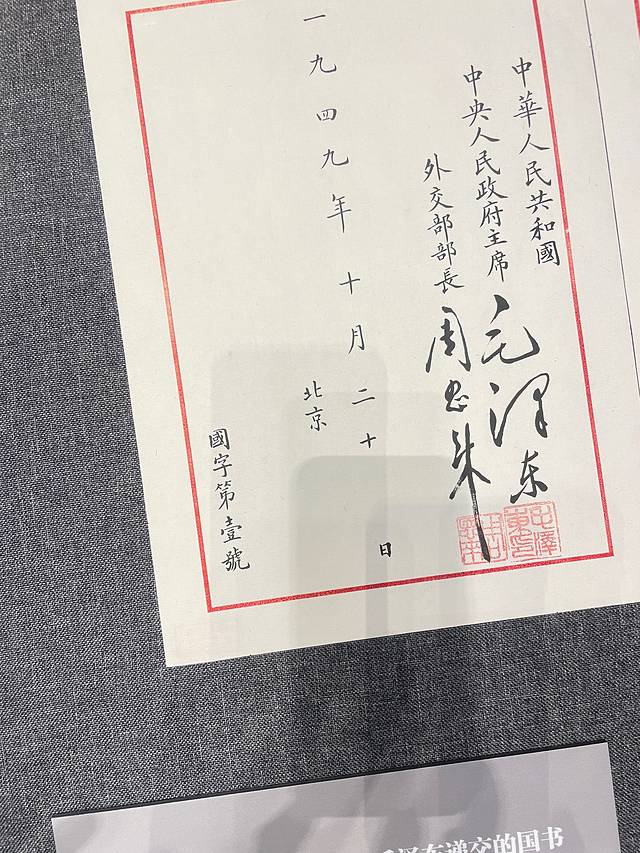 中華人民共和國
中央人民政府主席 毛澤东
外交部部長 周恩来
一九四九年十月二十日
北京
國字第壹號
毛澤東印
泽东递交的国书